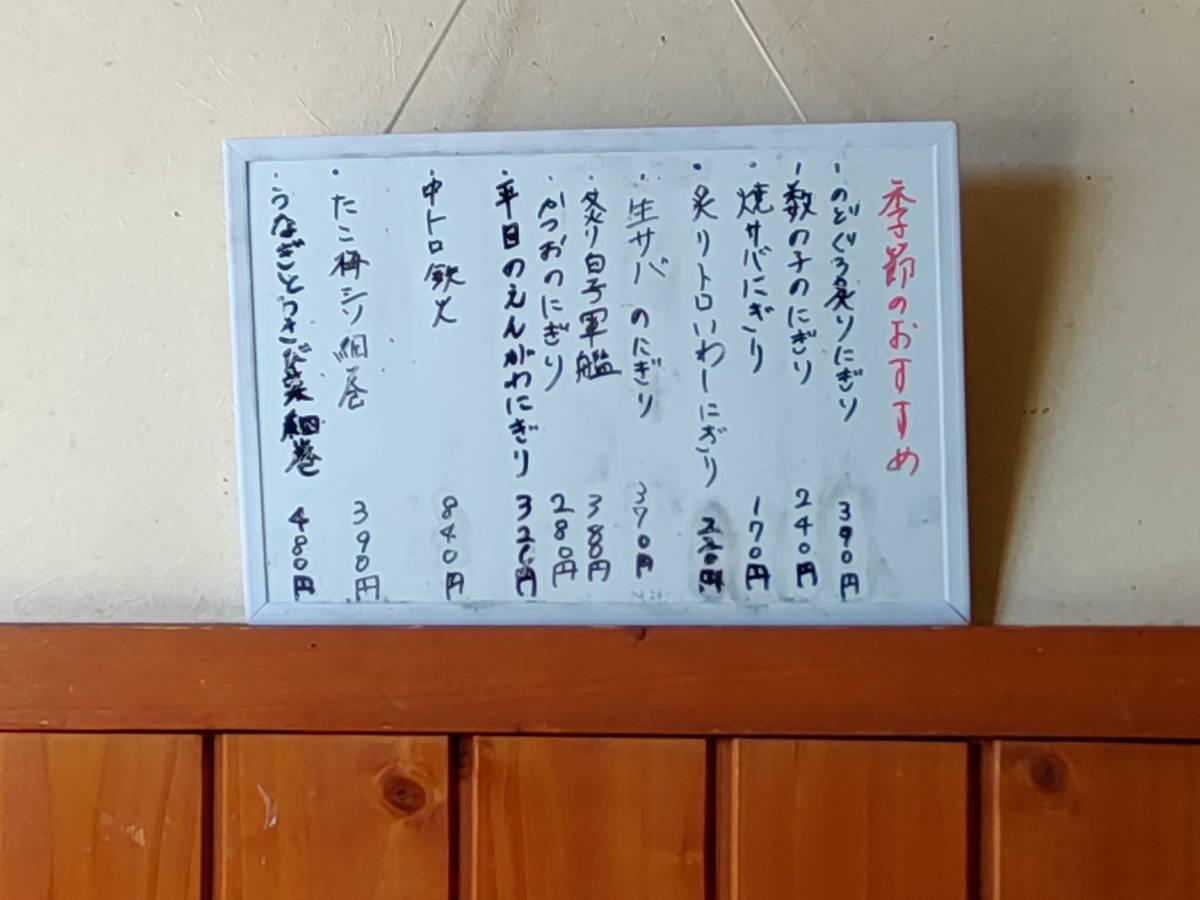 季節のおすすめ
・のどぐろ炙りにぎり 390円
・数の子のにぎり 240円
・焼サバにぎり 170円
・炙りトロいわしにぎり 220円
・生サバのにぎり 370円
・炙り白子軍艦 380円
・かつおのにぎり 280円
・平目のえんがわにぎり 320円
・中トロ鉄火 840円
・たこ梅シソ細巻 390円
・うなぎとわさび菜細巻 480円